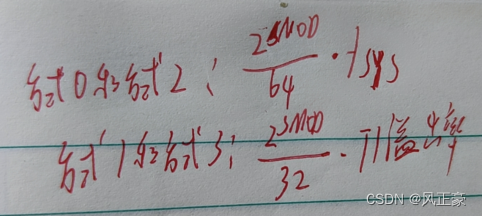 方式0和方式2： 2^SMOD/64 · fsys
方式1和方式3： 2^SMOD/32 · T1溢出率
CSDN @风正豪